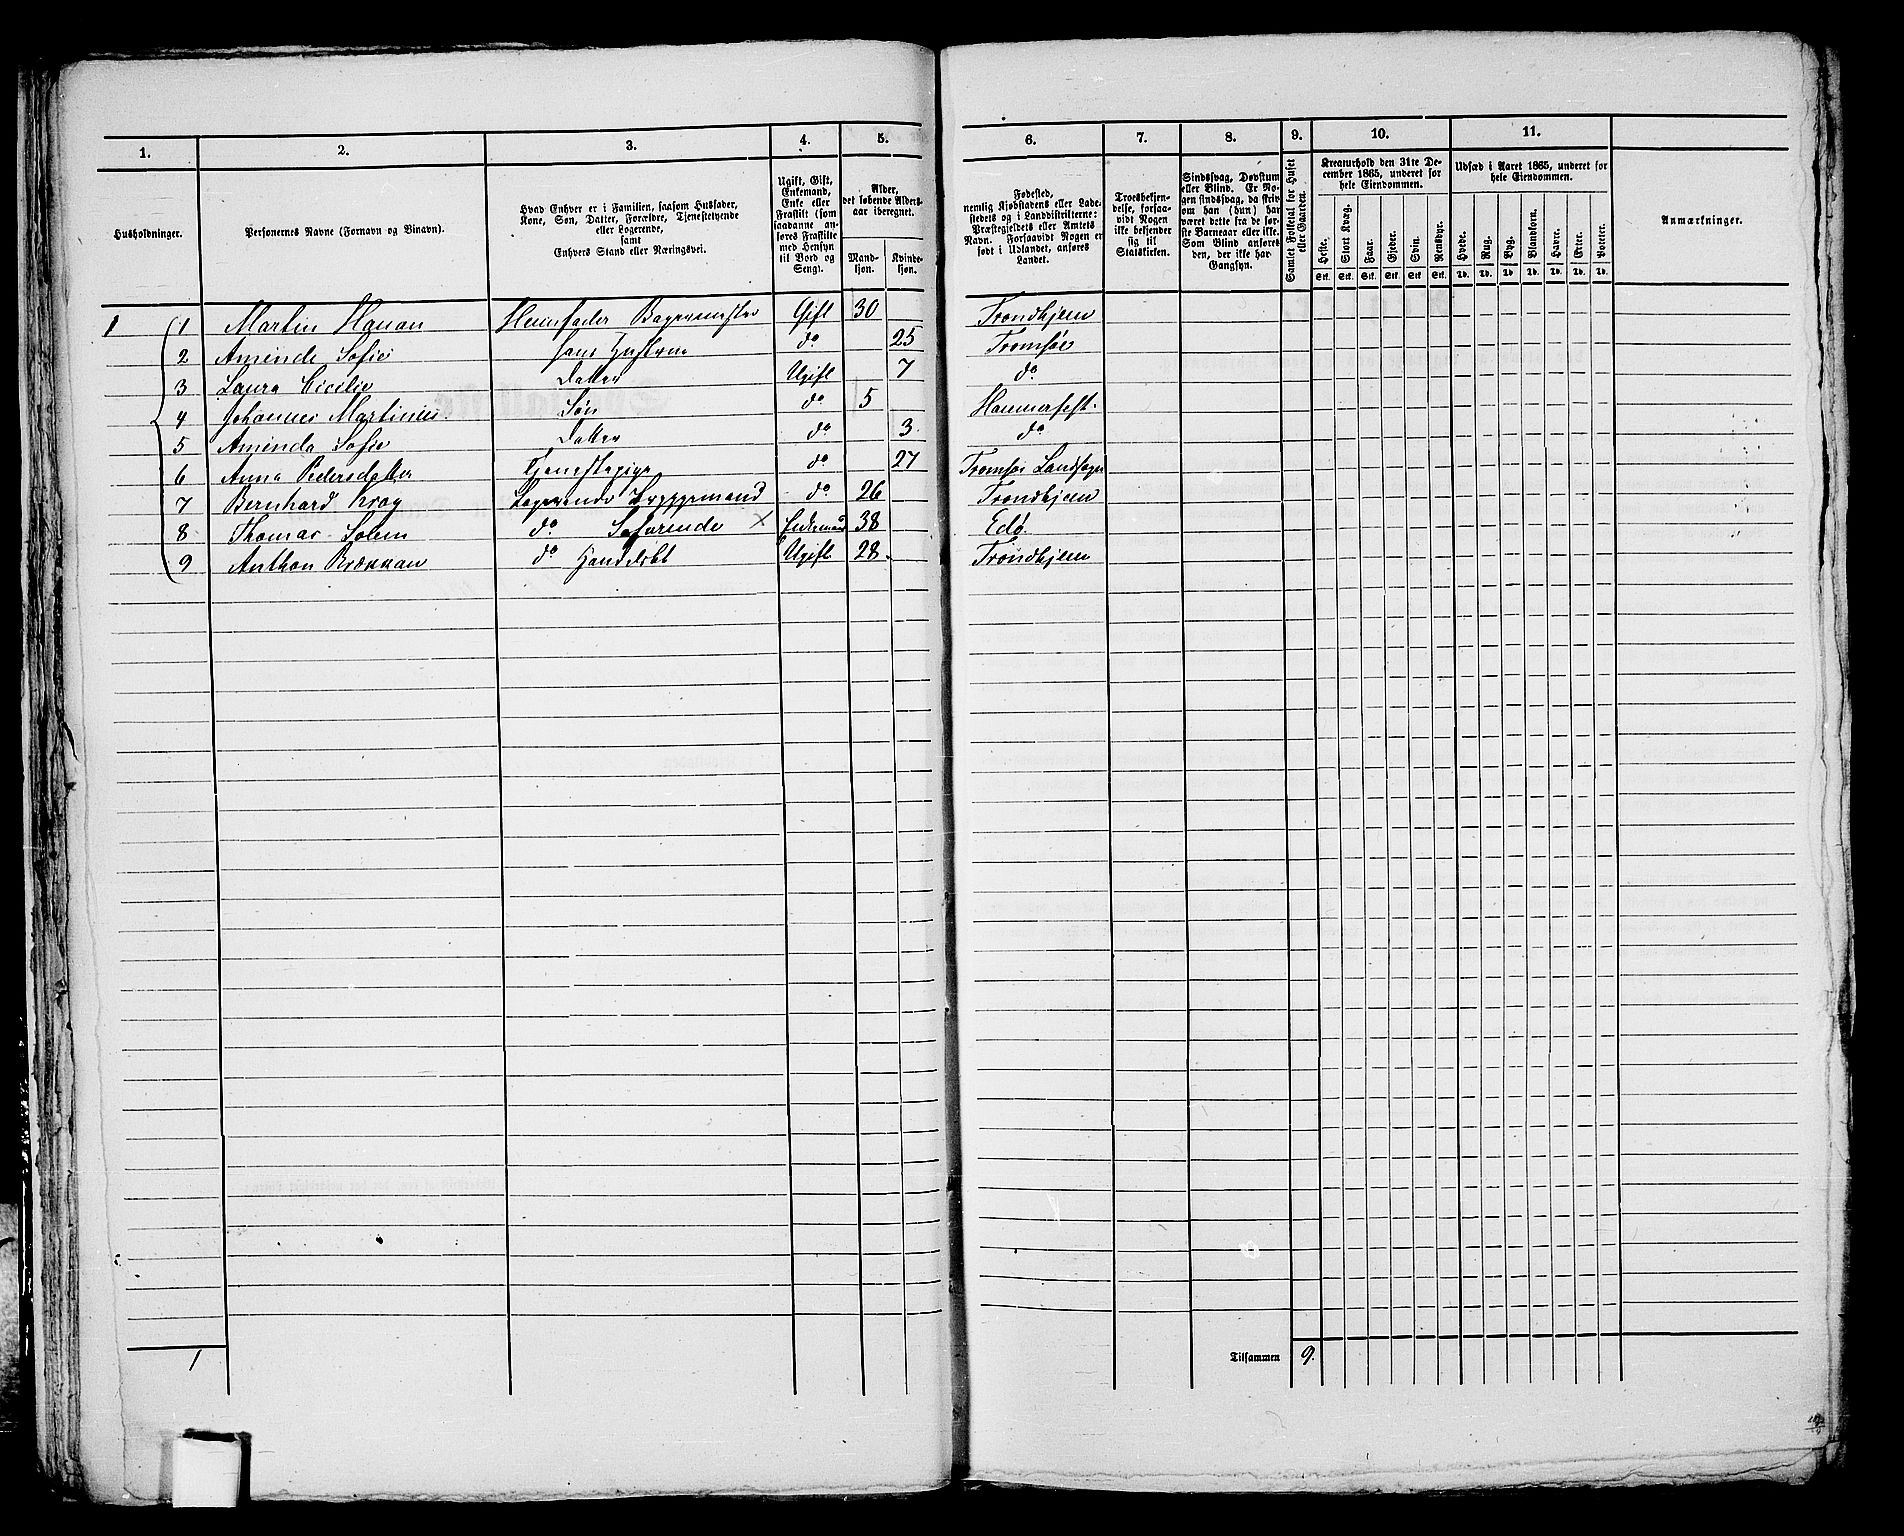 1. 2. 3. 4. 5. 6. 7. 8. 9. 10. 11.
Husholdninger.
Personernes Navne (Fornavn og Binavn).
Hvad Enhver er i Familien, saasom Husfader,
Kone, Søn, Datter, Forældre, Tjenestetyende
eller Logerende,
samt
Enhvers Stand eller Næringsvei.
Ugift, Gift,
Enkemand,
Enke eller
Fraskilt (som
saadanne an-
føres Fraskilte
med Hensyn
til Bord og
Seng).
Alder,
det løbende Alders-
aar iberegnet.
Mand-
kjøn.
Kvinde-
kjøn.
Fødested,
nemlig Kjøbstadens eller Lade-
stedets og i Landdistrikterne:
Præstegjeldets eller Amtets
Navn. Forsaavidt Nogen er
født i Udlandet, anføres
Landet.
Troesbekjen-
delse, forsaa-
vidt Nogen
ikke bekjender
sig til
Statskirken.
Sindssvag, Døvstum
eller Blind. Er No-
gen sindssvag, da skriv
om han (hun) har
været dette fra de før-
ste Barneaar eller ikke.
Som Blind anføres
den, der ikke har
Gangsyn.
Samlet Folketal for Huset
eller Gaarden.
Kreaturhold den 31te De-
cember 1865, underet for
hele Eiendommen.
Heste. Stort Kvæg. Faar. Gjeder. Svin. Rensdyr.
Stk. Stk. Stk. Stk. Stk. Stk.
Udsæd i Aaret 1865, underet for
hele Eiendommen.
Hvede. Rug. Byg. Blandkorn. Havre. Erter. Poteter.
Td. Td. Td. Td. Td. Td. Td.
Anmærkninger.
1 1 Martin Hanan Huusfader Bagermester Gift 30 Trondhjem
2 Aminda Sofie hans Hustrue do 25 Tromsøe
3 Laura Cicilie Datter Ugift 7 do
4 Johannes Martinus Søn do 5 Hammerfest
5 Aminda Sofie Datter do 3 do
6 Anna Pedersdatter Tjenestepige do 27 Tromsøe Landsogn
7 Bernhard Krog Logerende Bryggemand do 26 Trondhjem
8 Thomas Solem do Søfarende × Enkemand 38 Edø
9 Anthon Brækkan do Handelsbt Ugift 28 Trondhjem
1 Tilsammen 9.